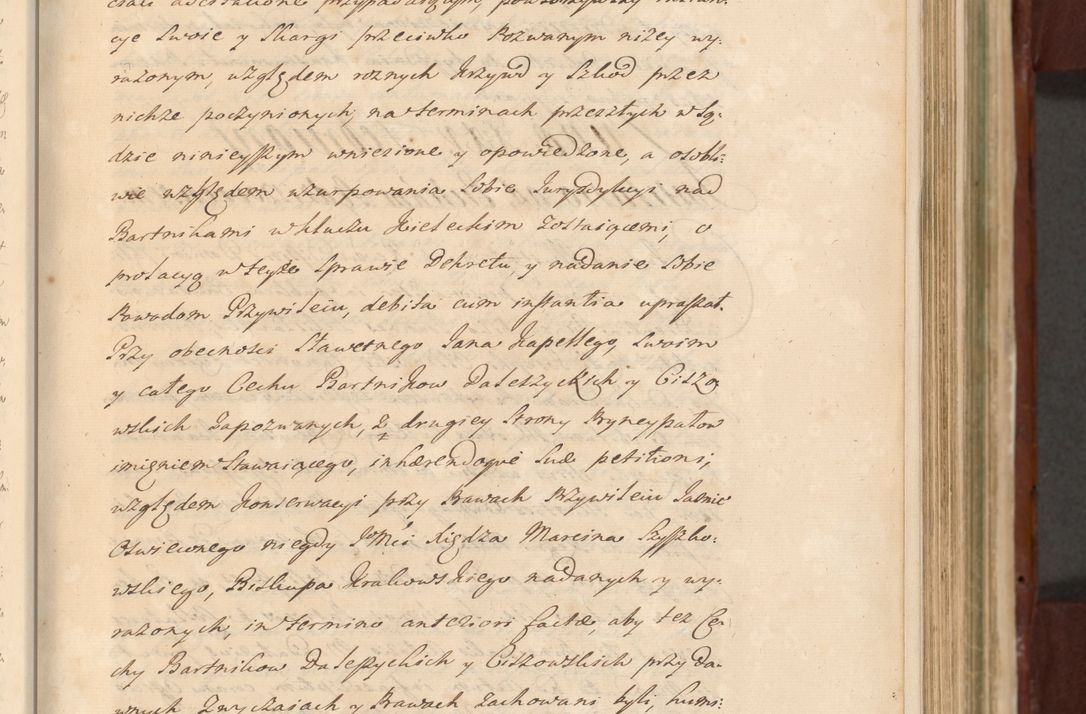 cye Swoie y Skargi przeciwko Pozwanym niżey wy:
rażonym, względem roznych Krzywd y Szkod przez
nichże poczynionych, na terminach przeszłych w Są:
dzie ninieyszym wniesione y opowiedzone, a osobli:
wie względem uzurpowania sobie Jurysdykcyi nad
Bartnikami w kluczu Kieleckim zostaiącemi, o
prolacyą w teyże Sprawie Dekretu, y nadanie Sobie
Powodom Przywileiu, debita cum instantia upraszał.
Przy obecności Sławetnego Jana Kapelłego, Swoim
y całego Cechu Bartnikow Daleszyckich y Ciszo
wskich Zapozwanych, z drugiey Strony Pryncypałow
imieniem stawaiącego, inhærendoque suæ petitioni,
względem Konserwacyi przy Prawach Przywileiu Jaśnie
Oświeconego niegdy JMći Xiędza Marcina Szyszko:
wskiego, Biskupa Krakowskiego nadanych y wy:
rażonych, in termino anteriori factæ, aby też Ce
chy Bartnikow Daleszyckich y Ciszowskich przy da:
wnych Zwyczaiach y Prawach zachowani byli, humi: